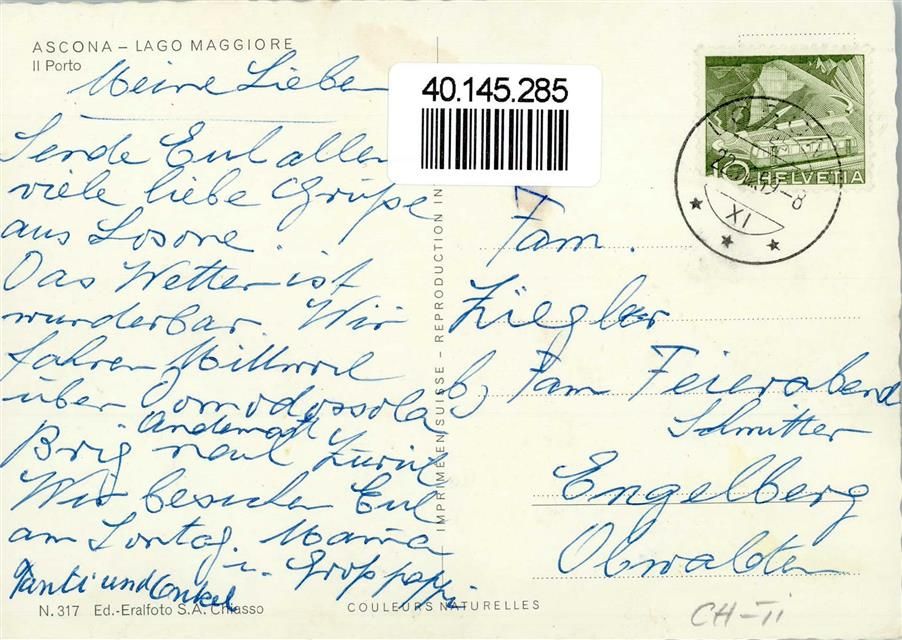 ASCONA – LAGO MAGGIORE
Il Porto
Meine Lieben
Sende Euch allen
viele liebe Grüsse
aus Losone.
Das Wetter ist
wunderbar. Wir
fahren Mittwoch
über Domodossola
Andermatt
Brig nach Zürich
Wir besuchen Euch
am Sontag. Mama
u. Grosspappi
Tanti und Onkel
N. 317 Ed.-Eralfoto S.A. Chiasso
COULEURS NATURELLES
IMPRIMÉ EN SUISSE – REPRODUCTION IN
40.145.285
HELVETIA
XI
Fam.
Ziegler
b) Fam Feierabend
Schnitter
Engelberg
Obwalden
CH-TI